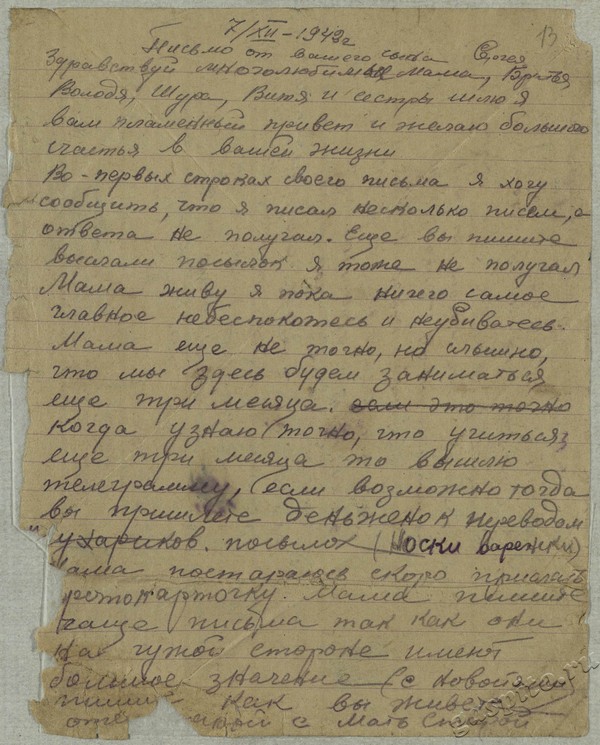 7/XII - 1942г
13
Письмо от вашего сына Сергея
Здравствуй многолюбимая Мама, Братья
Володя, Шура, Витя и сестры шлю я
вам пламенный привет и желаю большого
счастья в вашей жизни
Во-первых строках своего письма я хочу
сообщить, что я писал несколько писем, а
ответа не получал. Еще вы пишите
высылали посылок я тоже не получал
Мама живу я пока ничего самое
главное небеспокойтесь и неубивайтесь.
Мама еще не точно, но слышно,
что мы здесь будем заниматься
еще три месяца. если это точно
Когда узнаю точно, что учиться
еще три месяца то вышлю
телеграмму, (если возможно тогда
вы пришлите деньженок переводом
посылок (Носки варежки)
мама постараюсь скоро прислать
фотокарточку. Мама пишите
чаще письма так как они
на чужой стороне имеют
большое значение (с новой
как вы живете
с Мать